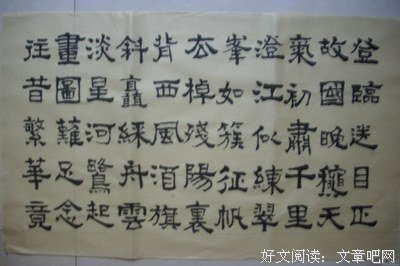 登臨送目正
故國晚龝天
氣初肅千里
澄江似練翠
峯如簇征帆
去棹殘陽裏
背西風酒旗
斜矗綵舟雲
淡星河鷺起
畫圖難足念
往昔繁華竟
好文阅读：文章吧网